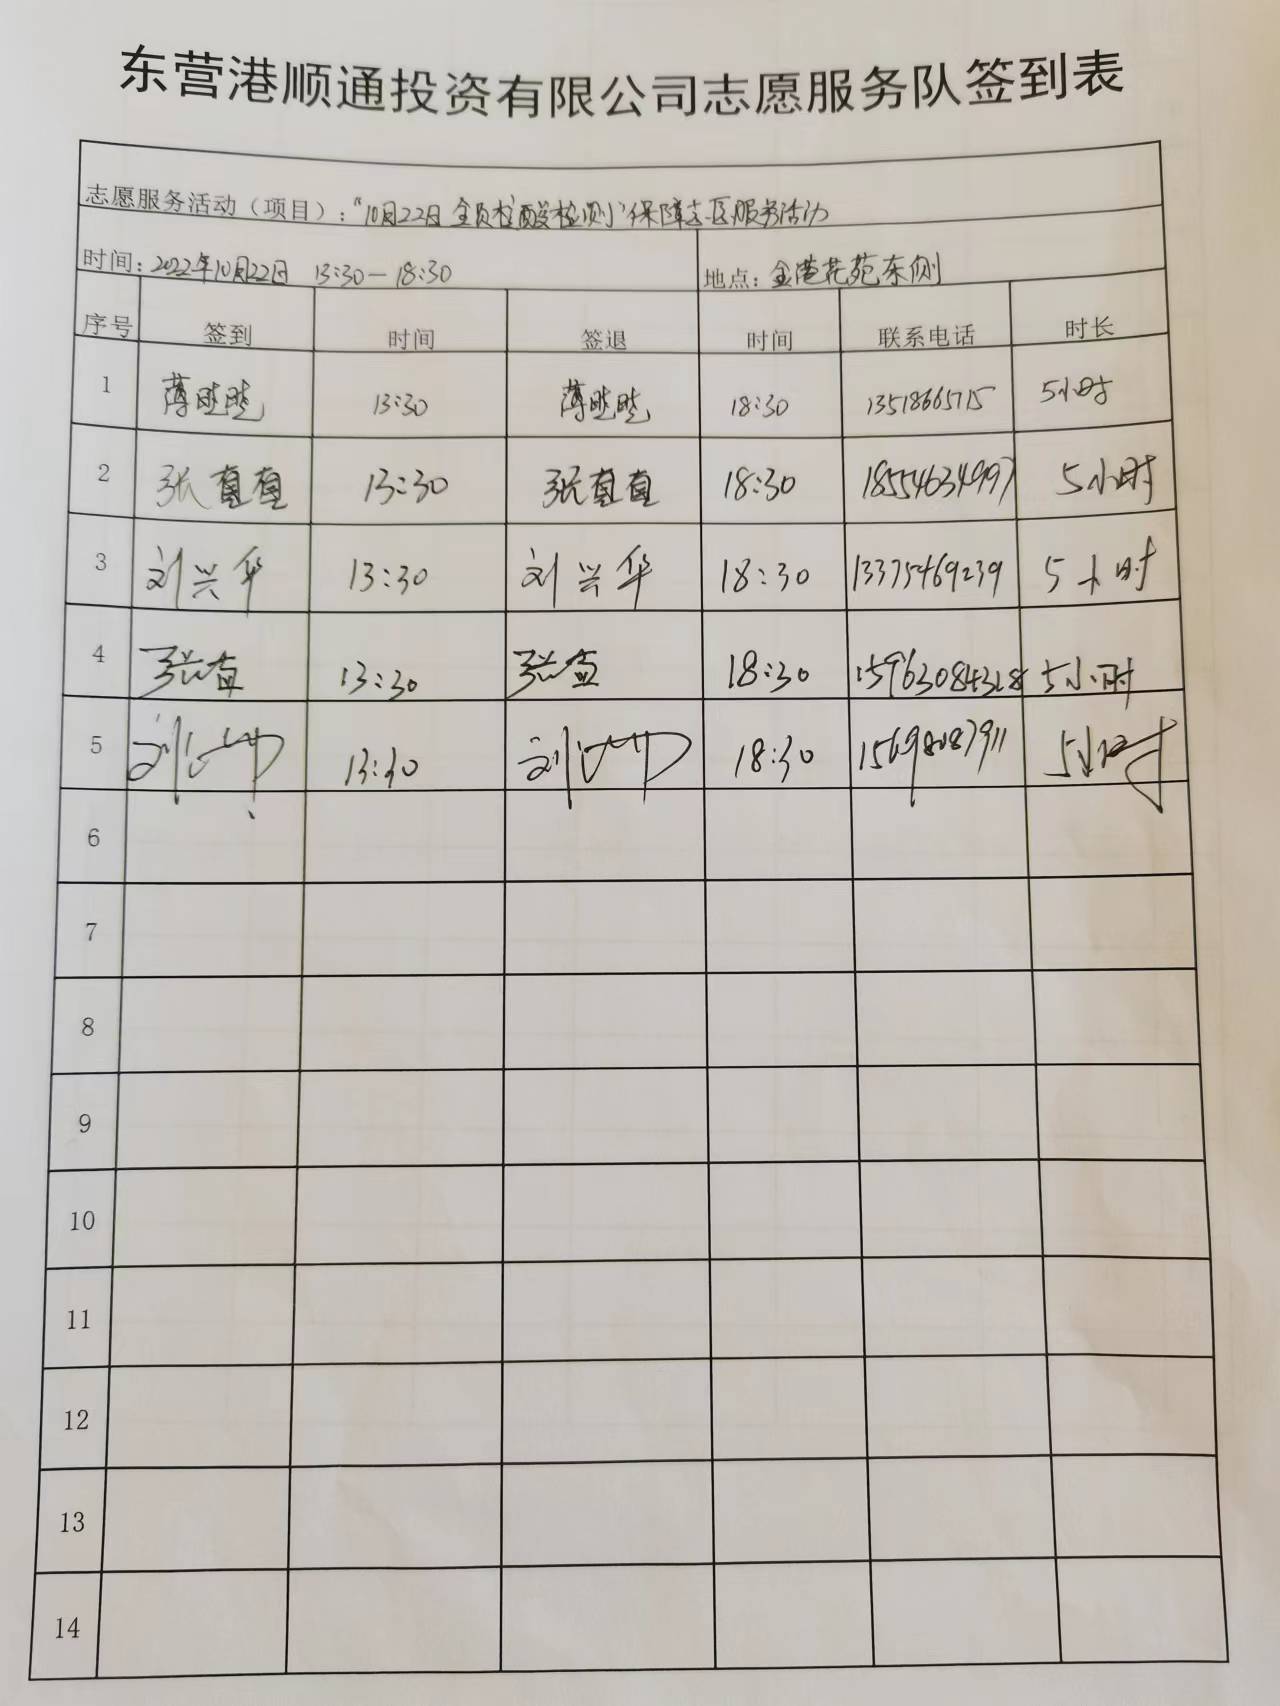 东营港顺通投资有限公司志愿服务队签到表
志愿服务活动（项目）：“10月22日全员核酸检测”保障志愿服务活动
时间：2022年10月22日 13:30—18:30 地点：金港花苑东侧
序号 签到 时间 签退 时间 联系电话 时长
1 薄 13:30 薄 18:30 13518665715 5小时
2 张直直 13:30 张直直 18:30 18554634997 5小时
3 刘兴华 13:30 刘兴华 18:30 13375469239 5小时
4 张 13:30 张 18:30 15963084328 5小时
5 刘 13:30 刘 18:30 15698087911 5小时
6
7
8
9
10
11
12
13
14